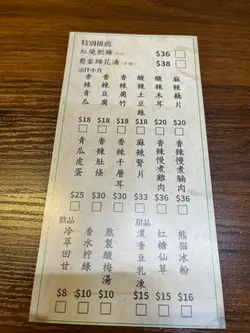 特別推薦
紅燒肥腸 $36
蜀客蹄花湯 $38
涼拌小食
香辣青瓜 $18
香辣豆腐 $18
香辣腐竹 $18
酸辣土豆絲 $18
酸辣木耳 $20
麻辣藕片 $20
青瓜皮蛋 $25
香辣肚條 $30
香辣千層耳 $30
麻辣腎片 $33
香辣慢煮雞肉 $36
香辣慢煮腩肉 $36
飲品
冷萃回甘 $8
香水檸綠 $10
熬製酸梅湯 $10
甜品
濃香豆乳凍 $15
紅糖仙草 $15
熊貓冰粉 $16